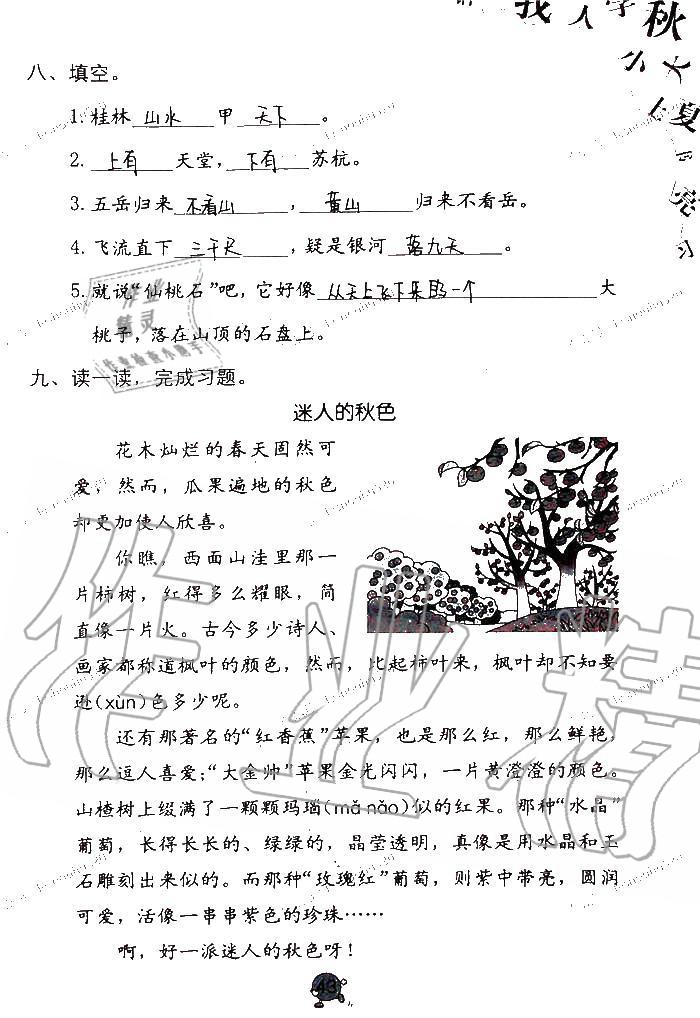 八、填空。
1.桂林 山水 甲 天下 。
2. 上有 天堂， 下有 苏杭。
3.五岳归来 不看山 ， 黄山 归来不看岳。
4.飞流直下 三千尺 ，疑是银河 落九天 。
5.就说“仙桃石”吧，它好像 从天上飞下来的一个 大
桃子，落在山顶的石盘上。
九、读一读，完成习题。
迷人的秋色
花木灿烂的春天固然可
爱，然而，瓜果遍地的秋色
却更加使人欣喜。
你瞧，西面山洼里那一
片柿树，红得多么耀眼，简
直像一片火。古今多少诗人、
画家都称道枫叶的颜色，然而，比起柿叶来，枫叶却不知要
逊(xùn)色多少呢。
还有那著名的“红香蕉”苹果，也是那么红，那么鲜艳，
那么逗人喜爱；“大金帅”苹果金光闪闪，一片黄澄澄的颜色。
山楂树上缀满了一颗颗玛瑙(mǎ nǎo)似的红果。那种“水晶”
葡萄，长得长长的、绿绿的，晶莹透明，真像是用水晶和玉
石雕刻出来似的。而那种“玫瑰红”葡萄，则紫中带亮，圆润
可爱，活像一串串紫色的珍珠……
啊，好一派迷人的秋色呀！
43
作业精灵
作业检查小助手